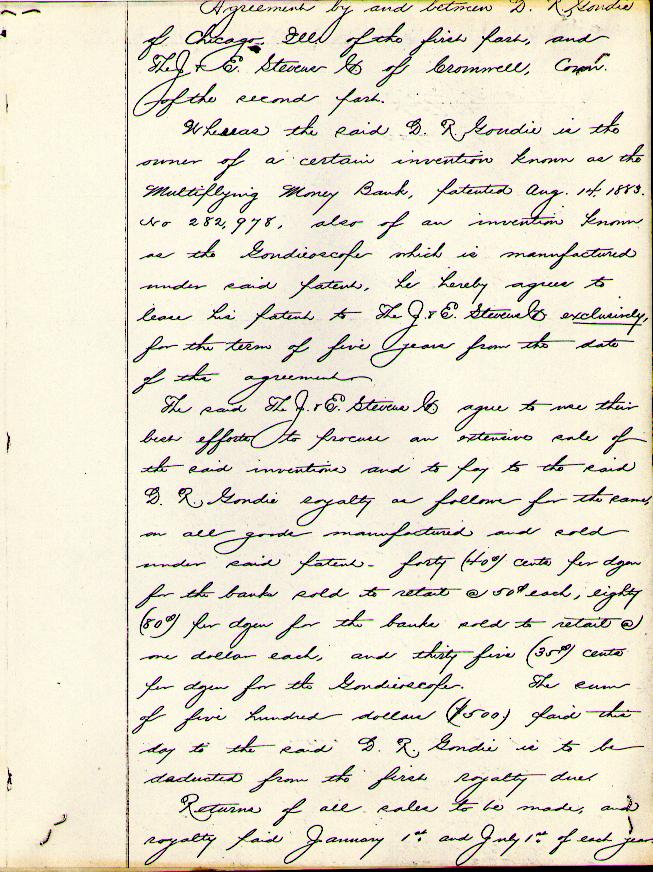 Agreement by and between D. R. Gondie
of Chicago, Ill. of the first part, and
The J. & E. Stevens Co of Cromwell, Conn.
of the second part.
Whereas the said D. R. Gondie is the
owner of a certain invention known as the
Multiplying Money Bank, patented Aug. 14, 1883.
No 282,978, also of an invention known
as the Gondieoscope which is manufactured
under said patent, he hereby agrees to
lease his patent to The J. & E. Stevens Co exclusively,
for the term of five years from the date
of this agreement.
The said The J. & E. Stevens Co agree to use their
best efforts to procure an extensive sale of
the said inventions and to pay to the said
D. R. Gondie royalty as follows for the same,
on all goods manufactured and sold
under said patent - forty (40¢) cents per dozen
for the banks sold to retail @ 50¢ each, eighty
(80¢) per dozen for the banks sold to retail @
one dollar each, and thirty five (35¢) cents
per dozen for the Gondieoscope. The sum
of five hundred dollars ($500) paid this
day to the said D. R. Gondie is to be
deducted from the first royalty due.
Returns of all sales to be made, and
royalty paid January 1st and July 1st of each year